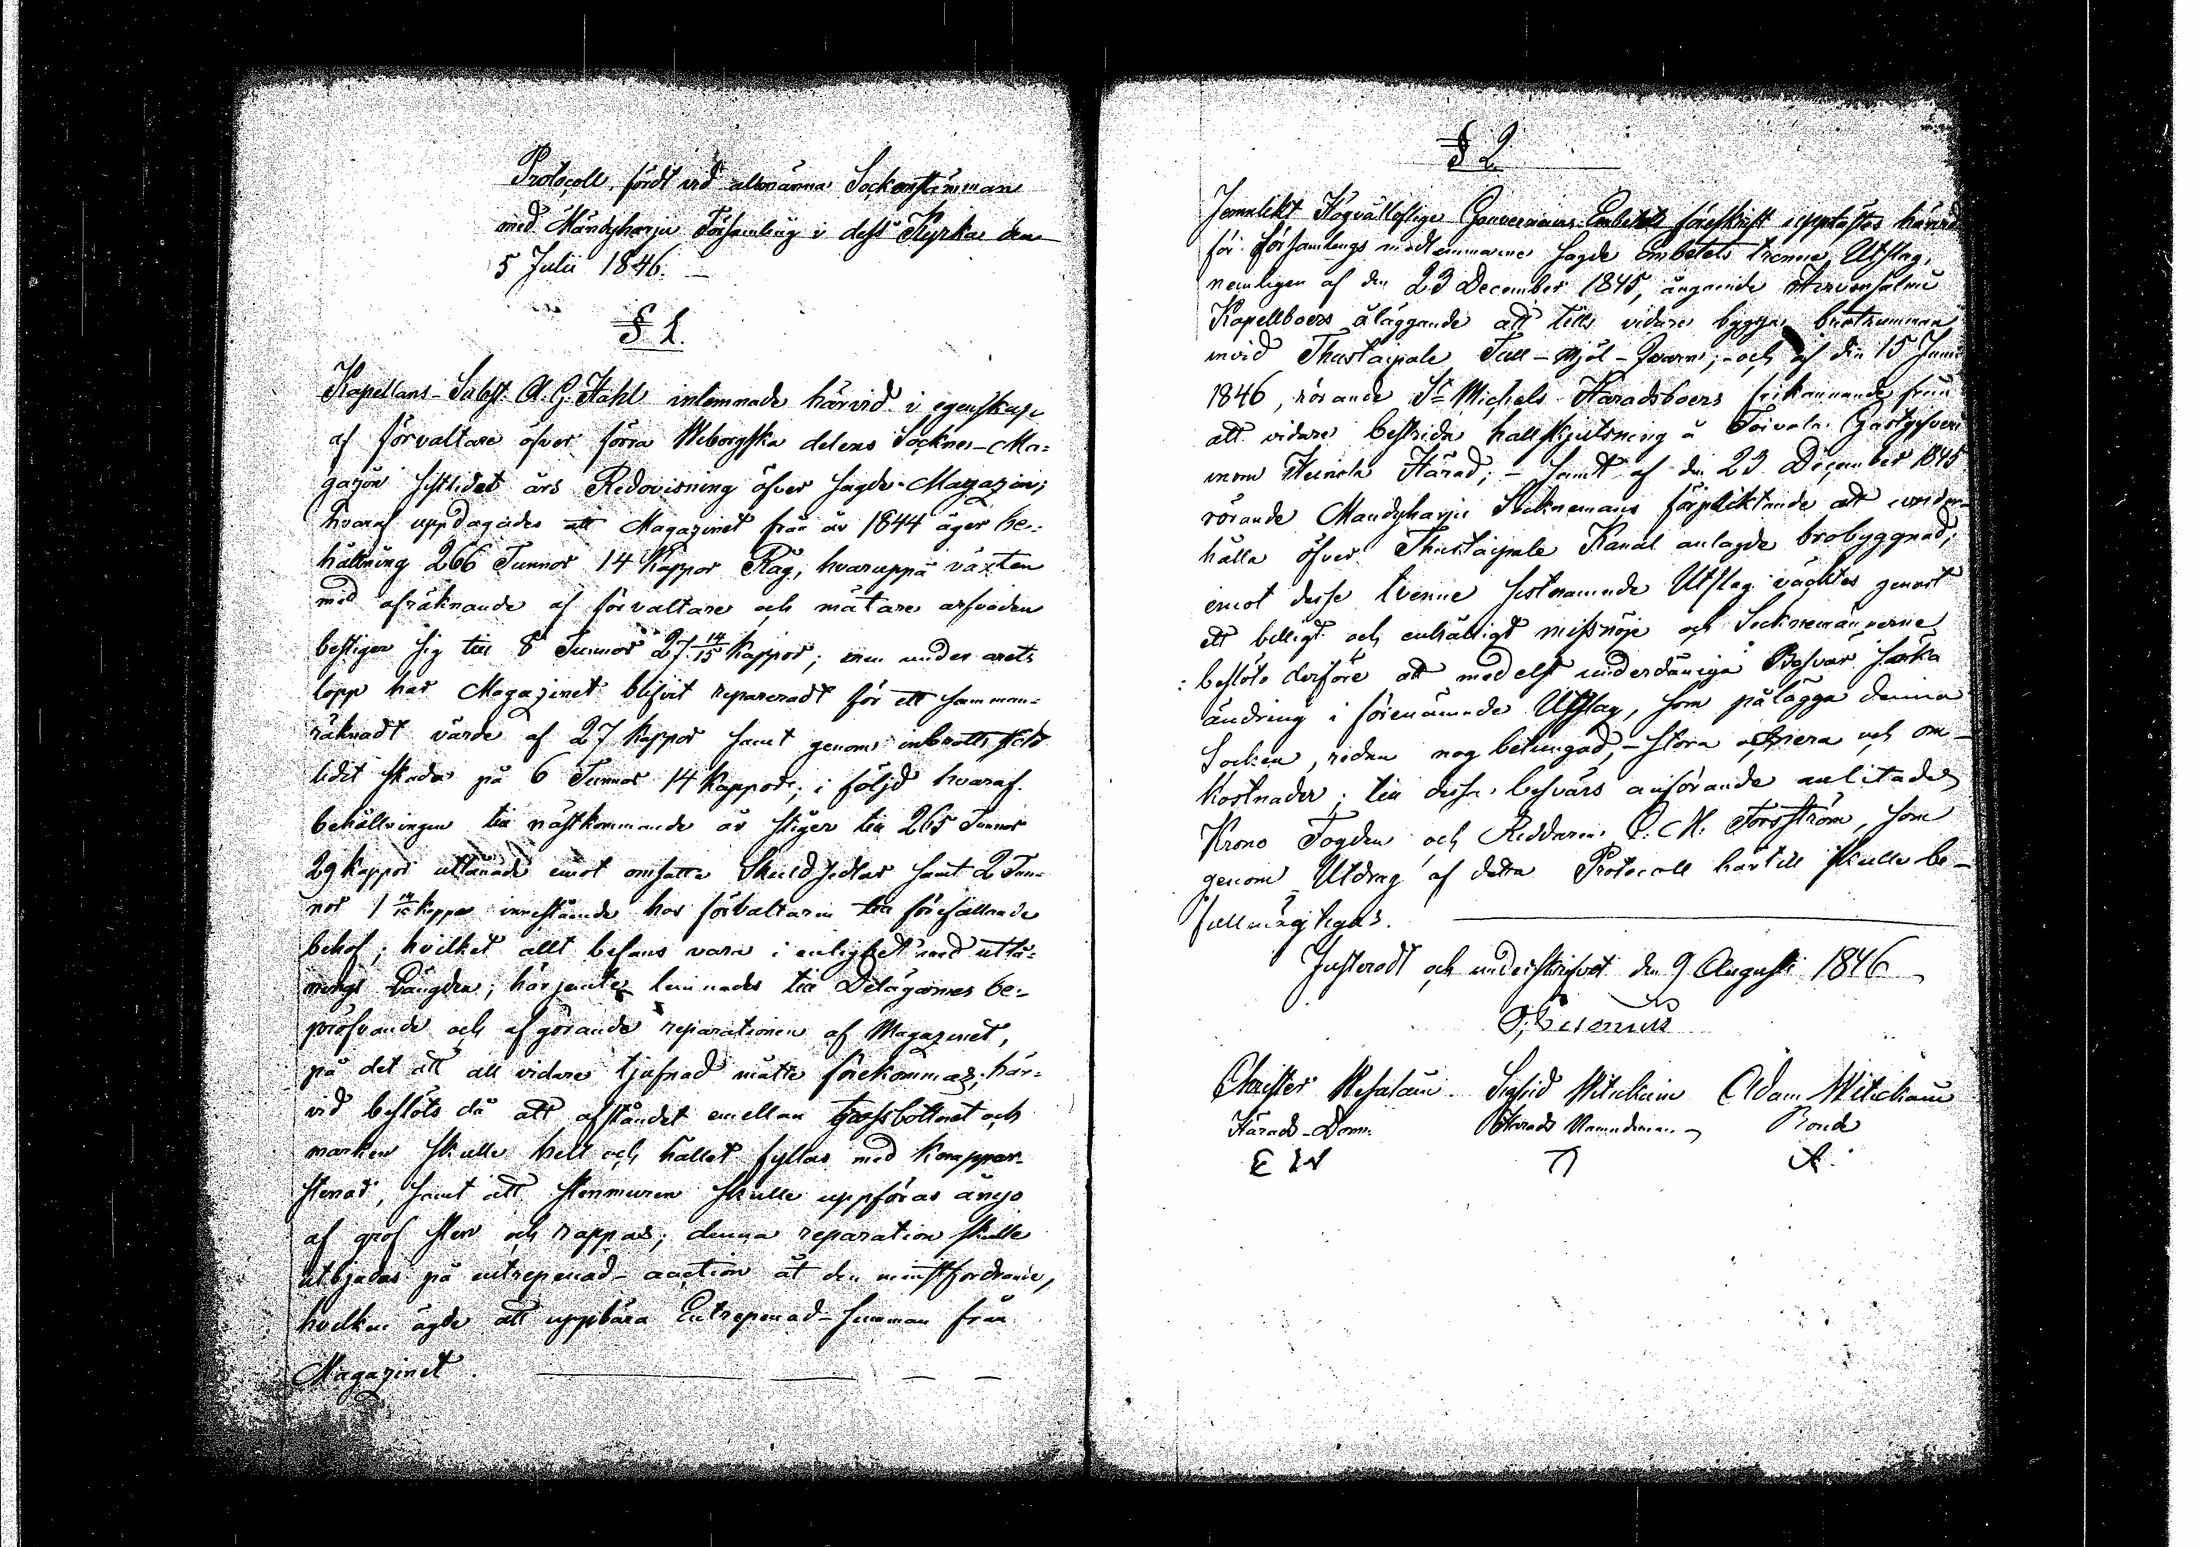 Protocoll, fördt vid allmänna Sockenstämman
med Mändyharju Församling i dess Kyrka den
5 Julii 1846.
§ 1.
Kapellans-Subst. A. G. Ståhl inlemnade härvid i egenskap
af förvaltare öfver förra Wiborgska delens Sockne-Ma-
gazin sistlidet års Redovisning öfver sagde Magazin;
hvaraf uppdagades att Magazinet från år 1844 äger be-
hållning 266 Tunnor 14 Kappor Råg, hvaruppå växten
med afräknande af förvaltare och mätare arfvoden
bestiger sig till 8 Tunnor 27 14/15 Kappor; men under årets
lopp har Magazinet blifvit repareradt för ett samman-
räknadt värde af 27 Kappor samt genom inbrotts stöld
lidit skada på 6 Tunnor 14 Kappor; i följd hvaraf
behållningen till nästkommande år stiger till 265 Tunnor
29 Kappor utlånade emot omsatta Skuldsedlar samt 2 Tun-
nor 1 14/15 Kappa innestående hos förvaltaren till förefallande
behof; hvilket allt befans vara i enlighet med utlå-
nings Längden; härjemte lemnades till Delägarnes be-
pröfvande och afgörande reparationen af Magazinet,
på det att all vidare tjufnad måtte förekommas; här-
vid beslöts då att afståndet emellan trossbottnet och
marken skulle helt och hållet fyllas med klappur-
stenar, samt att stenmuren skulle uppföras ånyo
af grof sten och rappas; denna reparation skulle
utbjudas på entrepenad-auction åt den minstfordrande,
hvilken ägde att uppbära Entrepenad-summan från
Magazinet.
§ 2
Jemnlikt Högvälloflige Gouvernements Embetets föreskrift upplästes härvid
för församlings medlemmarne sagde Embetets trenne Utslag,
nemligen af den 23 December 1845, angående Hirvensalmi
Kapellboers åläggande att tills vidare bygga brotrumman
invid Thustaipale Tull-Mjöl-Qvarn; och af den 15 Junii
1846, rörande St Michels Häradsboers frikännande från
att vidare bestrida hållskjutsning å Toivola Gästgifveri
inom Heinola Härad; – samt af den 23 December 1845
rörande Mandyharju Socknemäns förpliktande att underhålla
öfver Thustaipale Kanal anlagde brobyggnad;
emot desse tvenne sistnämnde Utslag väcktes genast
ett billigt och enhälligt missnöje och Socknemännerne
beslöto derföre att medelst underdåniga Besvär söka
ändring i förenämnde Utslag, som pålägga denna
Socken, redan nog betungad, – stora och om-
kostnader; till desse besvärs anförande anlitades
Krono Fogden och Riddaren C. H. Forsström, som
genom Utdrag af detta Protocoll härtill skulle be-
fullmägtigas.
Justeradt och underskrifvet den 9 Augusti 1846
Christer Wesalain Sigfrid Witickain Adam Witickain
Härads-Dom. Härads Nämndeman Bonde